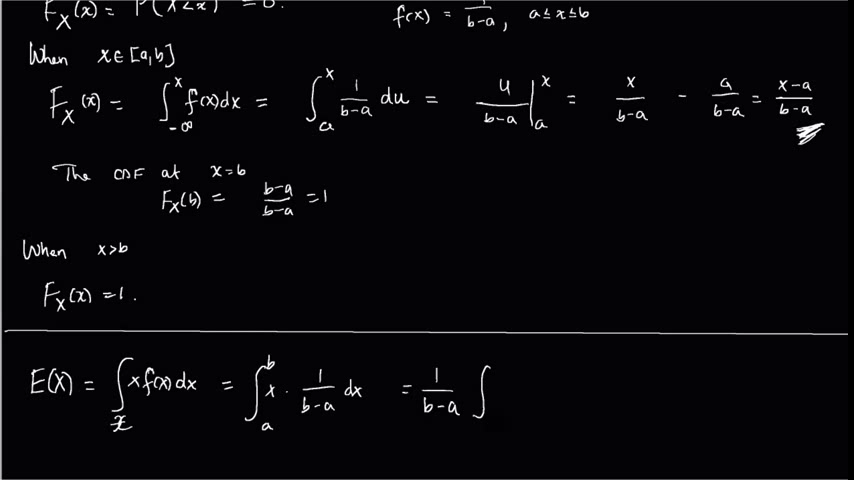 F_X(x) = P(X<x) = 0.
f(x) = 1/(b-a), a ≤ x ≤ b
When x ∈ [a,b]
F_X(x) = ∫_{-∞}^{x} f(x)dx = ∫_a^x 1/(b-a) du = u/(b-a) |_a^x = x/(b-a) - a/(b-a) = (x-a)/(b-a)
The CDF at x=b
F_X(b) = (b-a)/(b-a) = 1
When x>b
F_X(x) = 1.
E(X) = ∫_x x f(x) dx = ∫_a^b x · 1/(b-a) dx = 1/(b-a) ∫